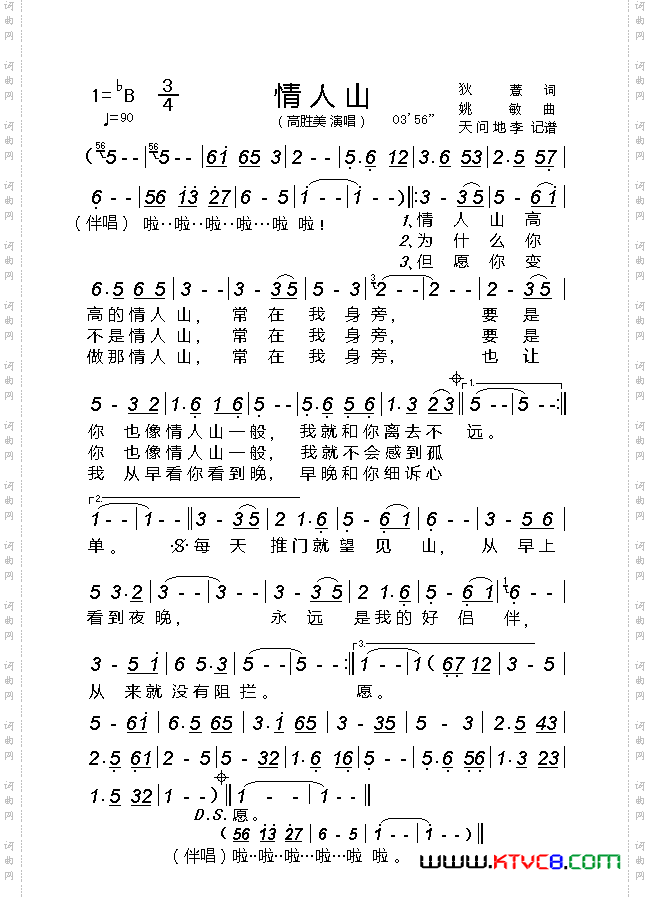 1=♭B 3/4
♩=90
情人山
（高胜美 演唱） 03'56"
狄薏 词
姚敏 曲
天问地李 记谱
（5 - - | 5 - - | 61 65 3 | 2 - - | 5·6 12 | 3·6 53 | 2·5 57 |
6 - - | 56 13 27 | 6 - 5 | 1 - - | 1 - - ）‖: 3 - 35 | 5 - 61 |
（伴唱）啦··啦··啦··啦···啦 啦！ 1、情 人 山 高
2、为 什 么 你
3、但 愿 你 变
6·5 6 5 | 3 - - | 3 - 35 | 5 - - | 2 - - | 2 - - | 2 - 35 |
高的情人山， 常 在 我 身 旁， 要 是
不是情人山， 常 在 我 身 旁， 要 是
做那情人山， 常 在 我 身 旁， 也 让
5 - 3 2 | 1·6 1 6 | 5 - - | 5·6 5 6 | 1·3 2 3 ‖ 1. 5 - - | 5 - - :‖
你 也像情人山一般， 我就和你离去不 远。
你 也像情人山一般， 我就不会感到孤
我 从早看你看到晚， 早晚和你细诉心
2. 1 - - | 1 - - ‖ 3 - 35 | 2 1·6 | 5 - 61 | 6 - - | 3 - 5 6 |
单。 ·S·每 天 推门就望 见 山， 从 早上
5 3·2 | 3 - - | 3 - - | 3 - 35 | 2 1·6 | 5 - 61 | 6 - - |
看到夜 晚， 永 远 是我的 好 侣 伴，
3 - 5 1 | 6 5·3 | 5 - - | 5 - - :‖ 3. 1 - - | 1 - - （ 67 12 | 3 - 5 |
从 来就 没有阻 拦。 愿。
5 - 61 | 6·5 65 | 3·1 65 | 3 - 35 | 5 - 3 | 2·5 43 |
2·5 61 | 2 - 5 | 5 - 32 | 1·6 16 | 5 - - | 5·6 56 | 1·3 23 |
1·5 32 | 1 - - ）‖ 1 - - | 1 - - ‖
D.S.愿。
（56 13 27 | 6 - 5 | 1 - - | 1 - - ）‖
（伴唱）啦··啦··啦···啦···啦 啦。
www.KTVC8.com
词曲网
词曲网